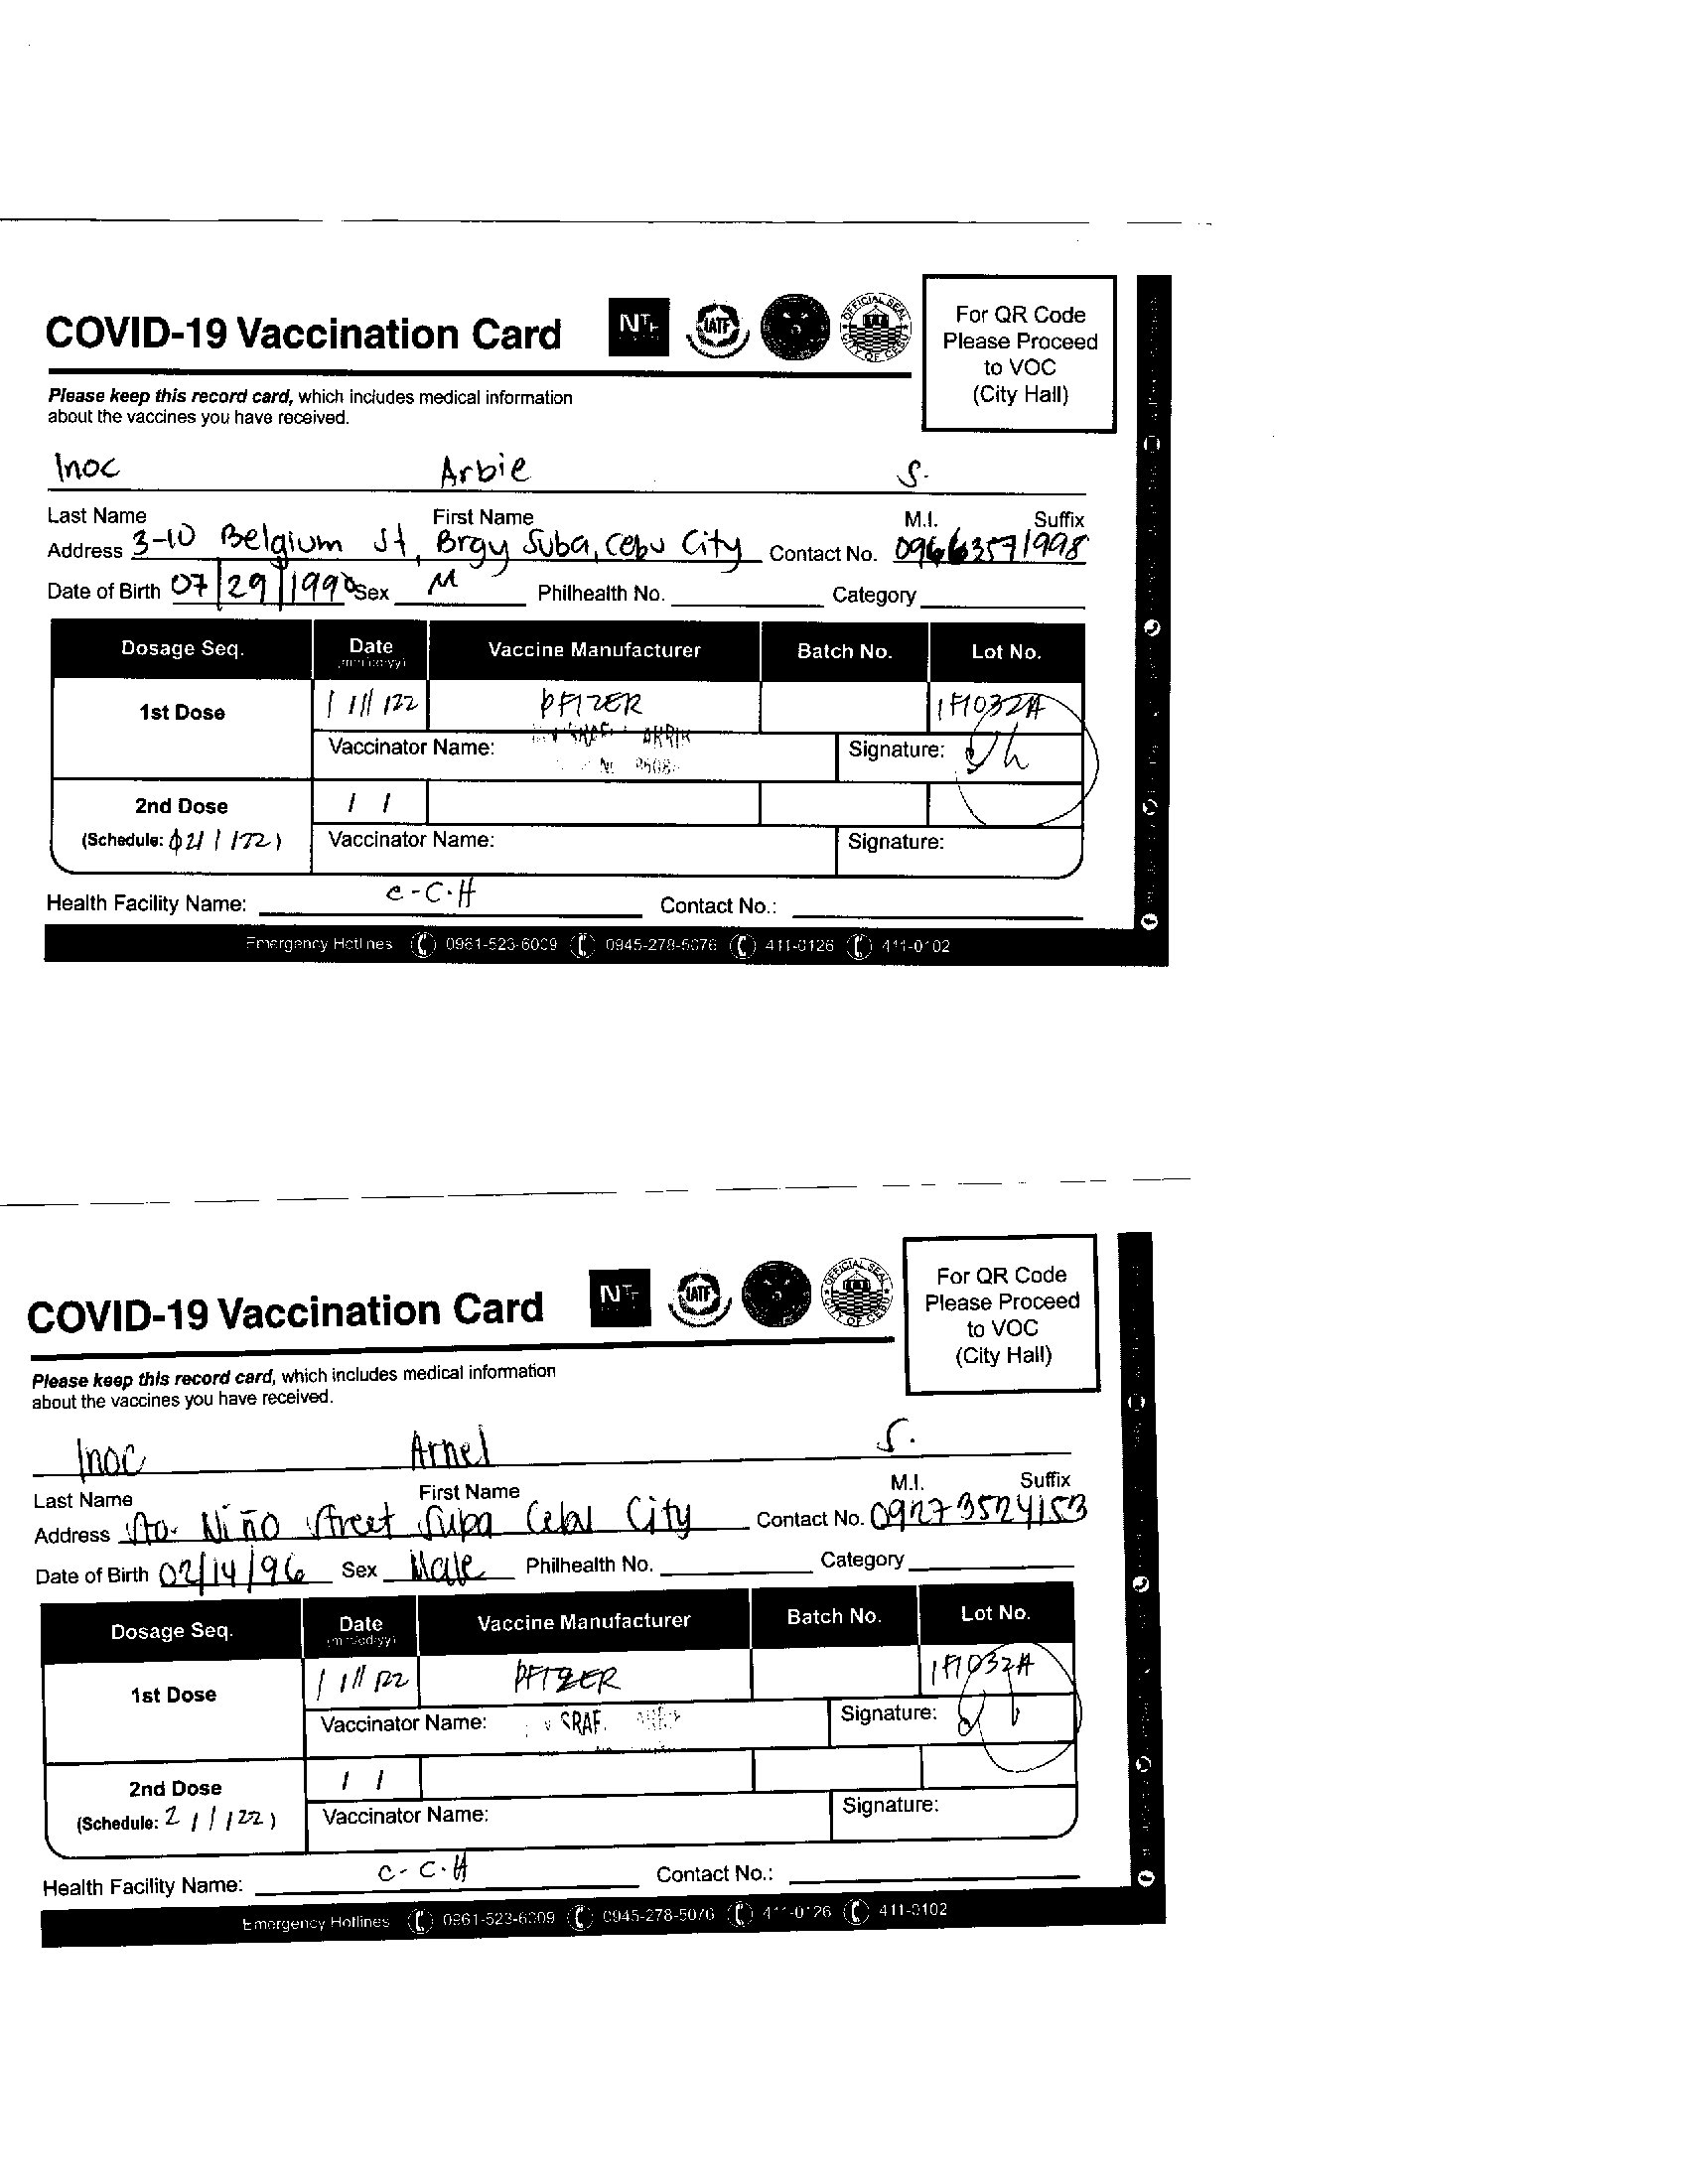 COVID-19 Vaccination Card
For QR Code
Please Proceed
to VOC
(City Hall)
Please keep this record card, which includes medical information
about the vaccines you have received.
Inoc Arbie S.
Last Name First Name M.I. Suffix
Address 3-10 Belgium St, Brgy Suba, Cebu City Contact No. 09663571998
Date of Birth 07/29/1990 Sex M Philhealth No. Category
Dosage Seq. Date (mm/dd/yy) Vaccine Manufacturer Batch No. Lot No.
1st Dose 1/11/22 PFIZER 1F1032A
Vaccinator Name: Signature:
2nd Dose / /
(Schedule: 2/1/22) Vaccinator Name: Signature:
Health Facility Name: C-C.H Contact No.:
Emergency Hotlines 0961-523-6009 0945-278-5076 411-0126 411-0102
COVID-19 Vaccination Card
For QR Code
Please Proceed
to VOC
(City Hall)
Please keep this record card, which includes medical information
about the vaccines you have received.
Inoc Arnel S.
Last Name First Name M.I. Suffix
Address Sto. Niño Street Suba Cebu City Contact No. 09273524153
Date of Birth 02/14/96 Sex Male Philhealth No. Category
Dosage Seq. Date (mm/dd/yy) Vaccine Manufacturer Batch No. Lot No.
1st Dose 1/11/22 PFIZER 1F1032A
Vaccinator Name: Signature:
2nd Dose / /
(Schedule: 2/1/22) Vaccinator Name: Signature:
Health Facility Name: C-C.H Contact No.:
Emergency Hotlines 0961-523-6009 0945-278-5076 411-0126 411-0102